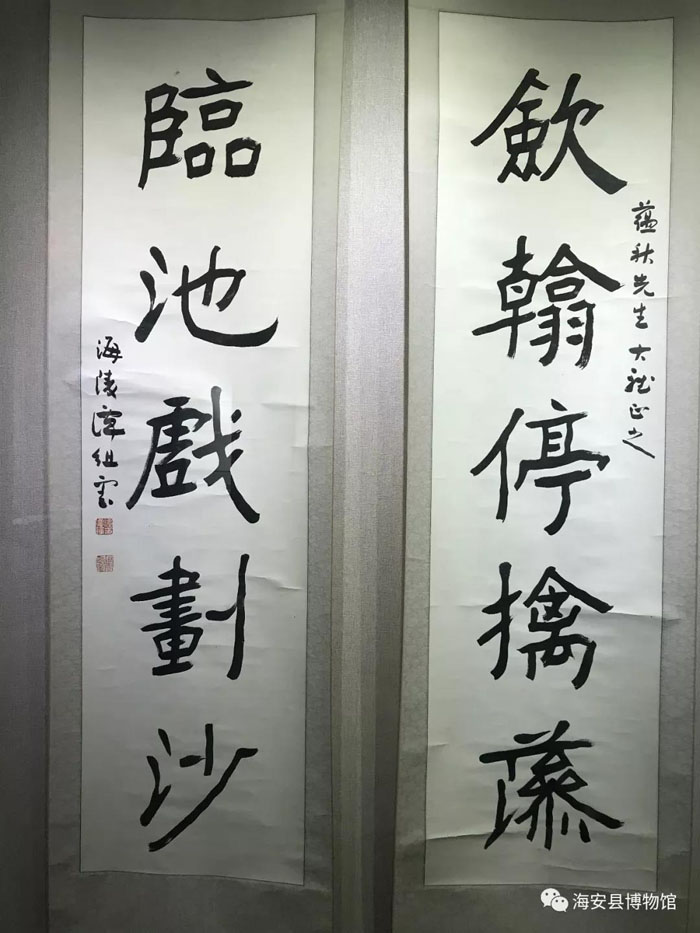 歛翰停摛藻
蘊秋先生大雅正之
臨池戲劃沙
海陵譚組雲
海安县博物馆